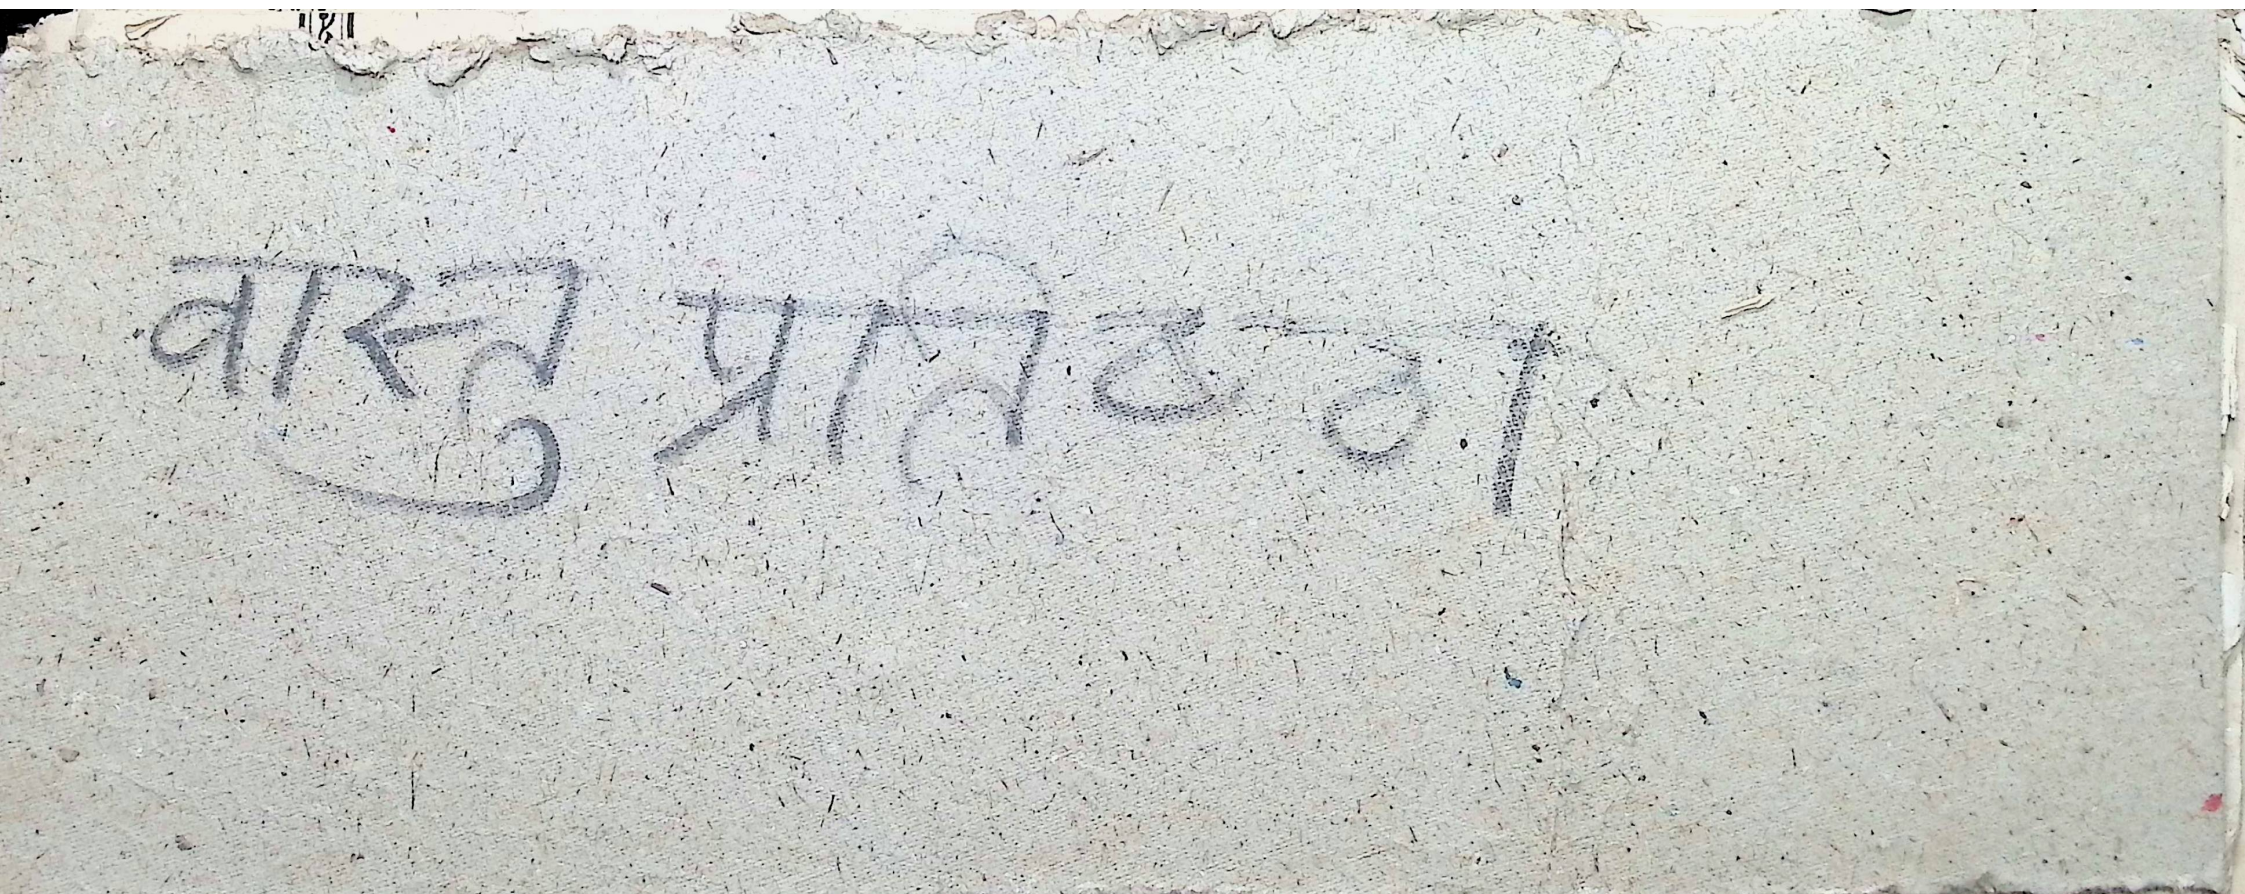 वास्तु प्रतिष्ठा